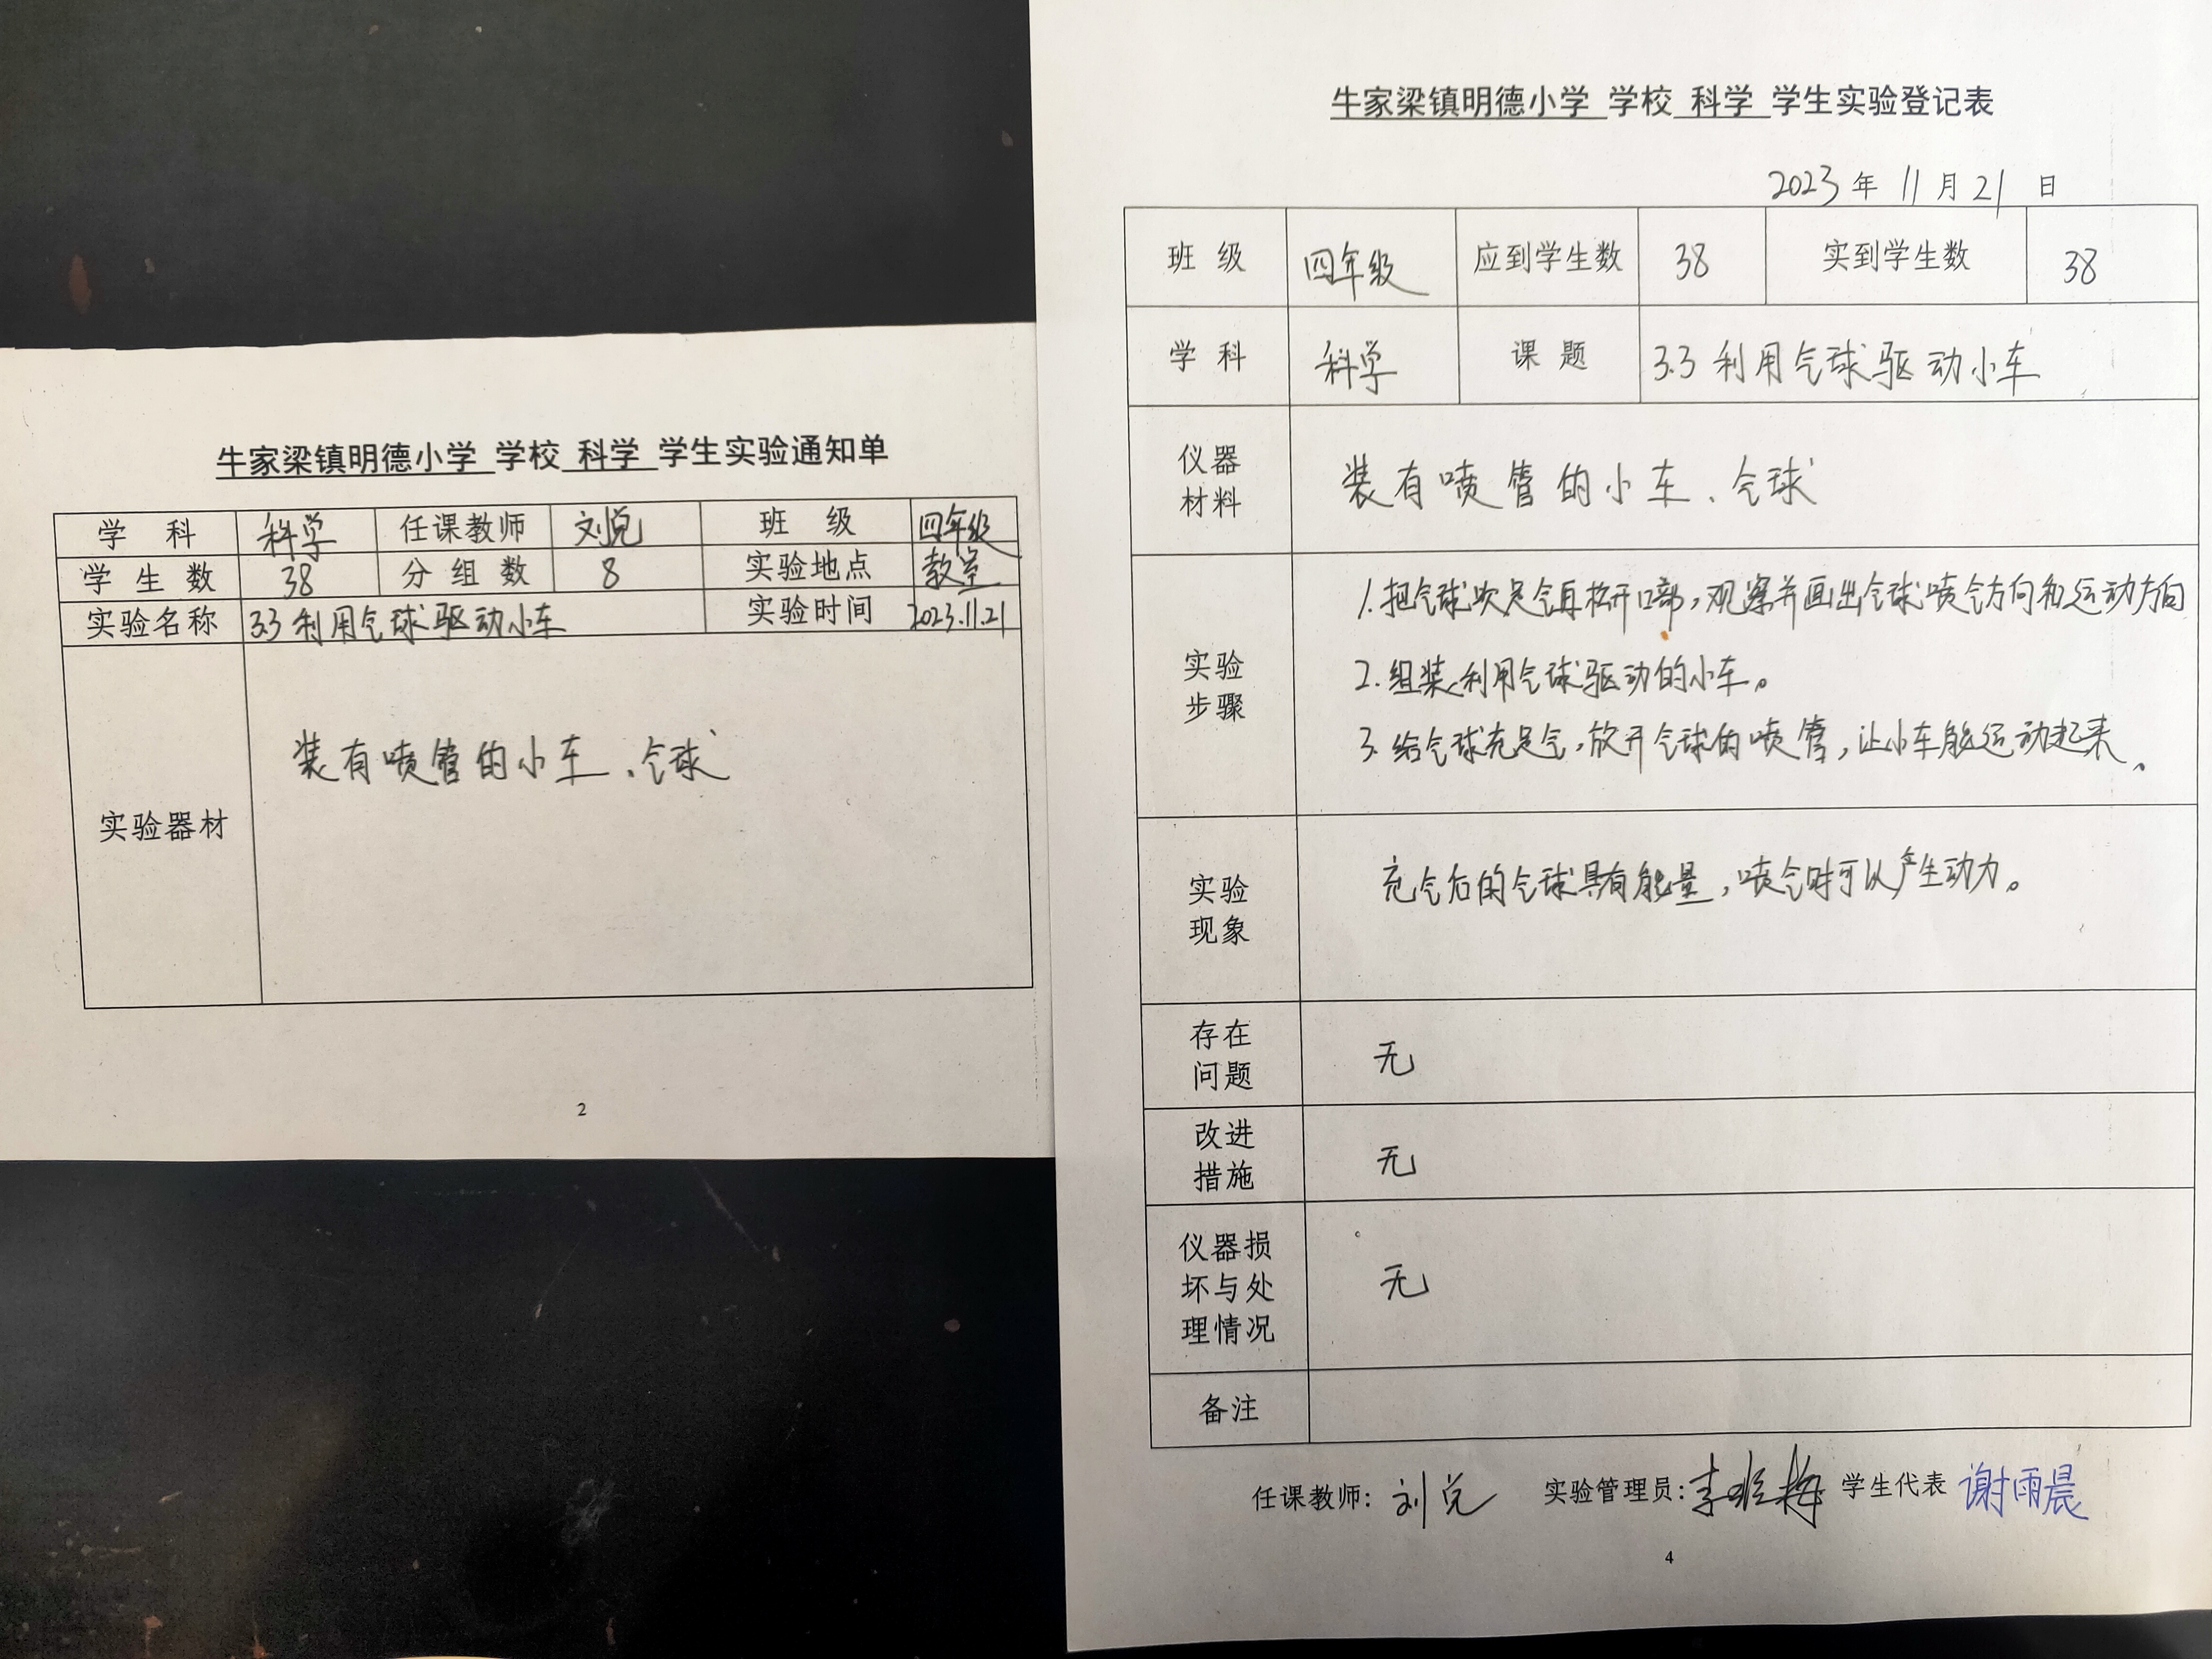 牛家梁镇明德小学 学校 科学 学生实验通知单
学 科 科学 任课教师 刘兑 班 级 四年级
学 生 数 38 分 组 数 8 实验地点 教室
实验名称 3.3 利用气球驱动小车 实验时间 2023.11.21
实验器材 装有喷管的小车、气球
2
牛家梁镇明德小学 学校 科学 学生实验登记表
2023 年 11 月 21 日
班 级 四年级 应到学生数 38 实到学生数 38
学 科 科学 课 题 3.3 利用气球驱动小车
仪器
材料
装有喷管的小车、气球
实验
步骤
1.把气球吹足气再松开口部,观察并画出气球喷气方向和运动方向
2.组装利用气球驱动的小车。
3.给气球充足气,放开气球的喷管,让小车能运动起来。
实验
现象
充气后的气球具有能量,喷气时可以产生动力。
存在
问题
无
改进
措施
无
仪器损
坏与处
理情况
无
备注
任课教师: 刘兑 实验管理员: 学生代表 谢雨晨
4